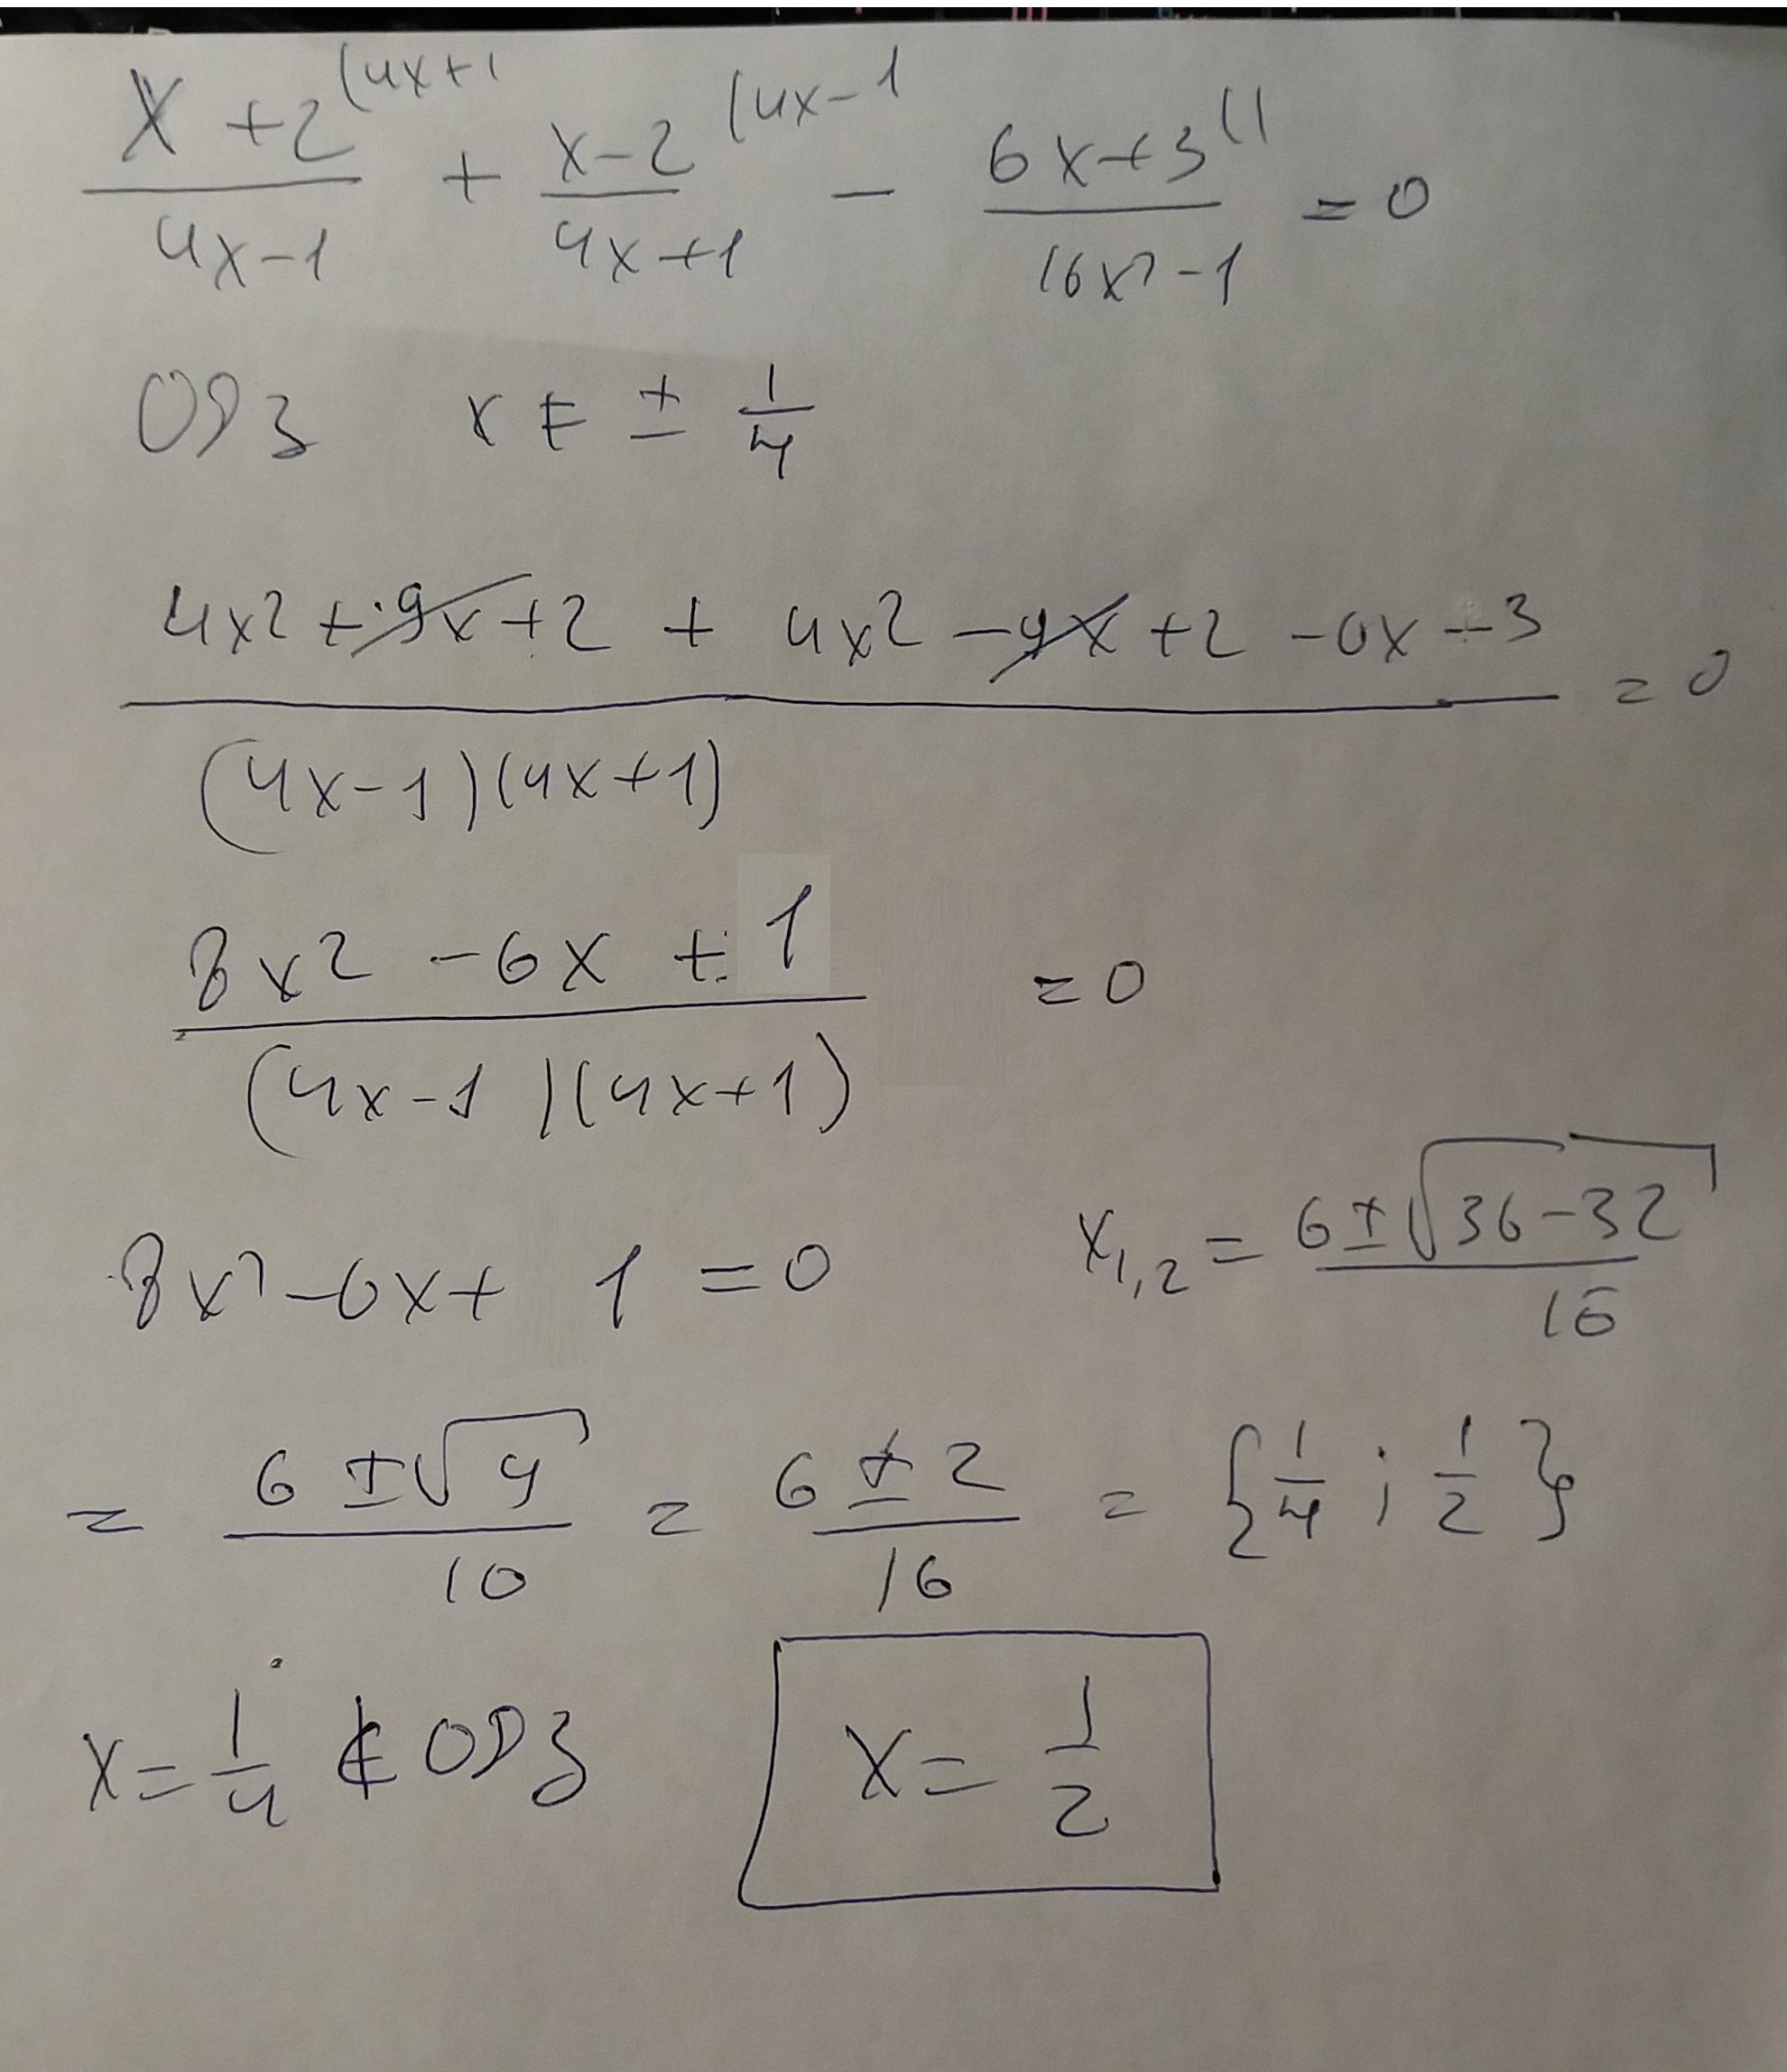 (x+2)/(4x-1) (4x+1 + (x-2)/(4x+1) (4x-1 - (6x+3)/(16x²-1) (1 = 0
ОДЗ x ≠ ± 1/4
(4x² + 9x + 2 + 4x² - 9x + 2 - 6x - 3)/((4x-1)(4x+1)) = 0
(8x² - 6x + 1)/((4x-1)(4x+1)) = 0
8x² - 6x + 1 = 0 x₁,₂ = (6 ± √(36-32))/16
= (6 ± √4)/16 = (6 ± 2)/16 = {1/4 ; 1/2}
x = 1/4 ∉ ОДЗ x = 1/2